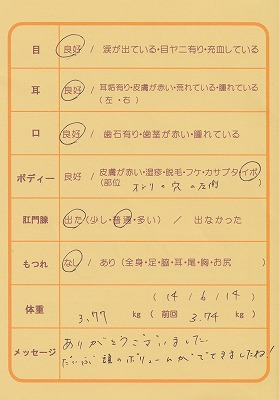 目 良好 / 涙が出ている・目ヤニ有り・充血している
耳 良好 / 耳垢有り・皮膚が赤い・荒れている・腫れている
(左・右)
口 良好 / 歯石有り・歯茎が赤い・腫れている
ボディー 良好 / 皮膚が赤い・湿疹・脱毛・フケ・カサブタ・イボ
(部位 オシリの穴の左側 )
肛門腺 出た(少し・普通・多い) / 出なかった
もつれ なし / あり(全身・足・脇・耳・尾・胸・お尻)
体重 ( 14 / 6 / 14 )
3.77 kg ( 前回 3.74 kg )
メッセージ ありがとうございました
だいぶ頭のボリュームがでてきましたね!